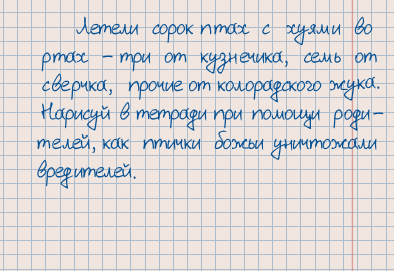 Летели сорок птах с хуями во
ртах - три от кузнечика, семь от
сверчка, прочие от колорадского жука.
Нарисуй в тетради при помощи роди-
телей, как птички божьи уничтожали
вредителей.